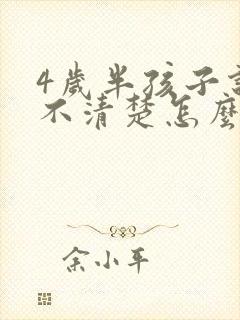 4歲半孩子
不清楚怎麼
余小平